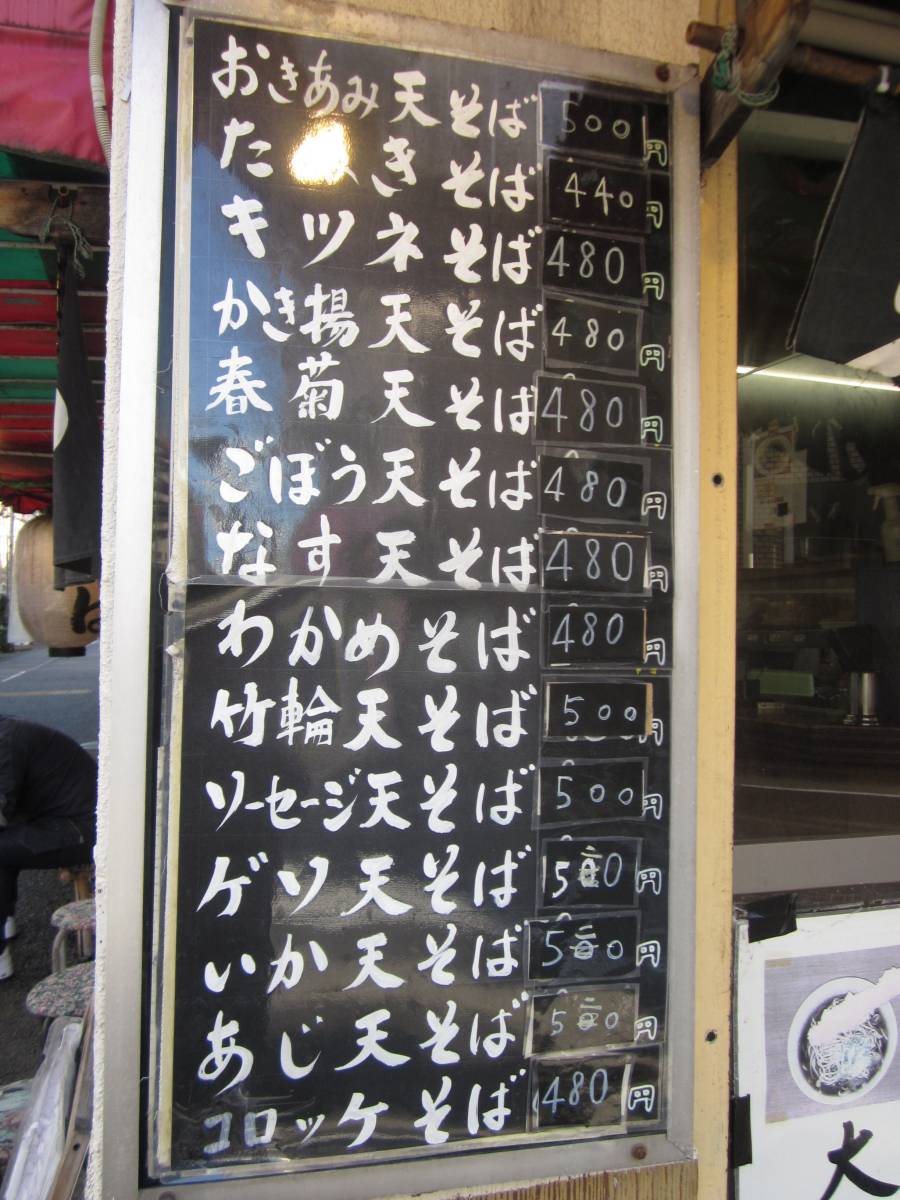 おきあみ天そば 500円
た き そば 440円
キツネそば 480円
かき揚天そば 480円
春菊天そば 480円
ごぼう天そば 480円
なす天そば 480円
わかめそば 480円
竹輪天そば 500円
ソーセージ天そば 500円
ゲソ天そば 円
いか天そば 円
あじ天そば 円
コロッケそば 480円